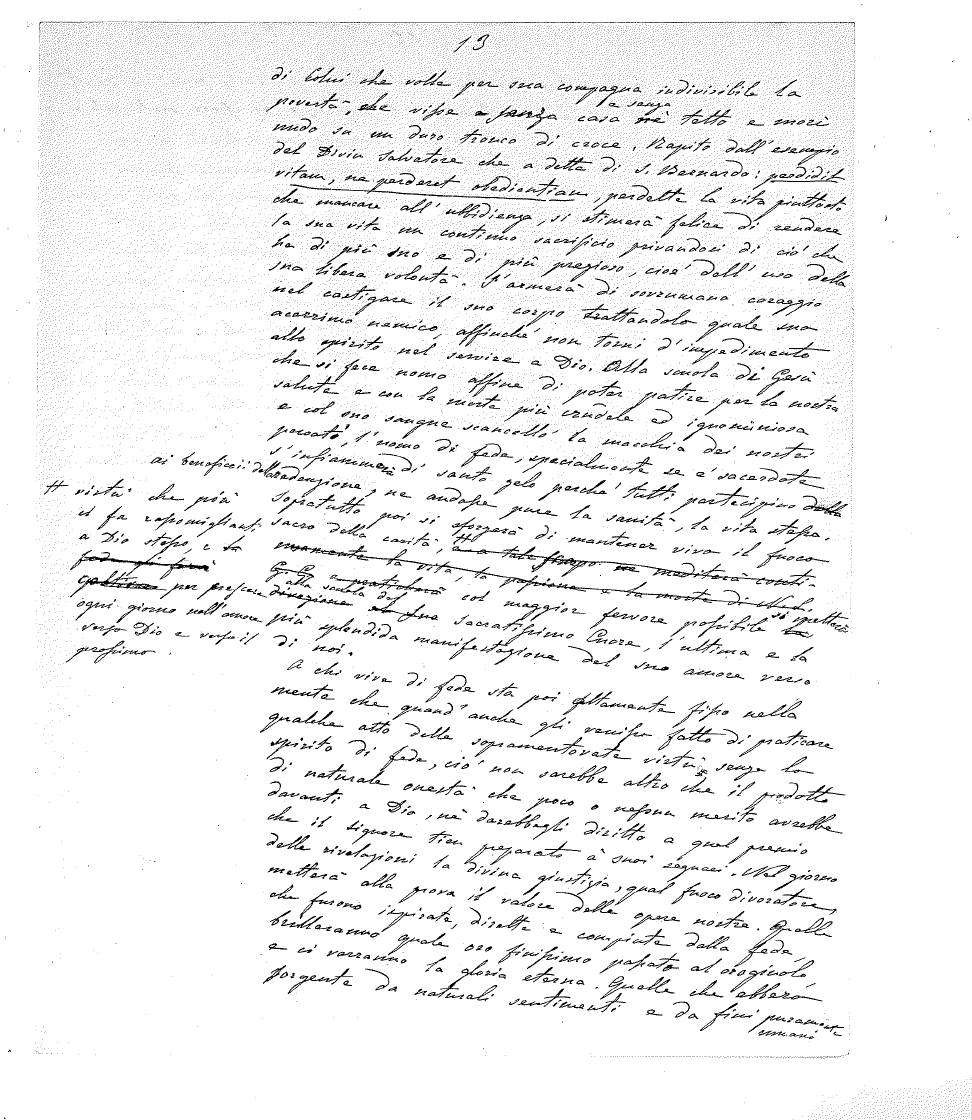 13
di Colui che volle per sua compagna indivisibile la
povertà, che visse e senza casa nè e senza tetto e morì
nudo su un duro tronco di croce. Rapito dall'esempio
del Divin Salvatore che a detta di S. Bernardo: perdidit
vitam, ne perderet obedientiam, perdette la vita piuttosto
che mancare all'ubbidienza, si stimerà felice di rendere
la sua vita un continuo sacrificio privandosi di ciò che
ha di più suo e di più prezioso, cioè dell'uso della
sua libera volontà. S'armerà di sovrumano coraggio
nel castigare il suo corpo trattandolo quale suo
acerrimo nemico, affinchè non torni d'impedimento
allo spirito nel servire a Dio. Alla scuola di Gesù
che si fece uomo affine di poter patire per la nostra
salute e con la morte più crudele ed ignominiosa
e col suo sangue scancellò la macchia dei nostri
peccati, l'uomo di fede, specialmente se è sacerdote
s'infiammerà di santo zelo perchè tutti partecipino della
ai beneficii della redenzione, ne andasse pure la sanità, la vita stessa.
Sopratutto poi si sforzerà di mantener vivo il fuoco
sacro della carità, # e a tale scopo ne mediterà conti-
nuamente la vita, la passione e la morte di N. S.
G. C. e praticherà col maggior fervore possibile la si metterà
alla scuola del divozione al suo sacratissimo Cuore, l'ultima e la
più splendida manifestazione del suo amore verso
di noi.
# virtù che più
ci fa rassomiglianti
a Dio stesso, e la
fede gli farà
per crescere
ogni giorno nell'amore
verso Dio e verso il
prossimo.
A chi vive di fede sta poi altamente fisso nella
mente che quand'anche gli venisse fatto di praticare
qualche atto delle sopramentovate virtù senza lo
spirito di fede, ciò non sarebbe altro che il prodotto
di naturale onestà che poco o nessun merito avrebbe
davanti a Dio, nè darebbegli diritto a quel premio
che il Signore tien preparato a' suoi seguaci. Nel giorno
delle rivelazioni la divina giustizia, qual fuoco divoratore,
metterà alla prova il valore delle opere nostre. Quelle
che furono inspirate, dirette e compiute dalla fede,
brilleranno quale oro finissimo passato al crogiuolo
e ci varranno la gloria eterna. Quelle che ebbero
sorgente da naturali sentimenti e da fini puramente
umani